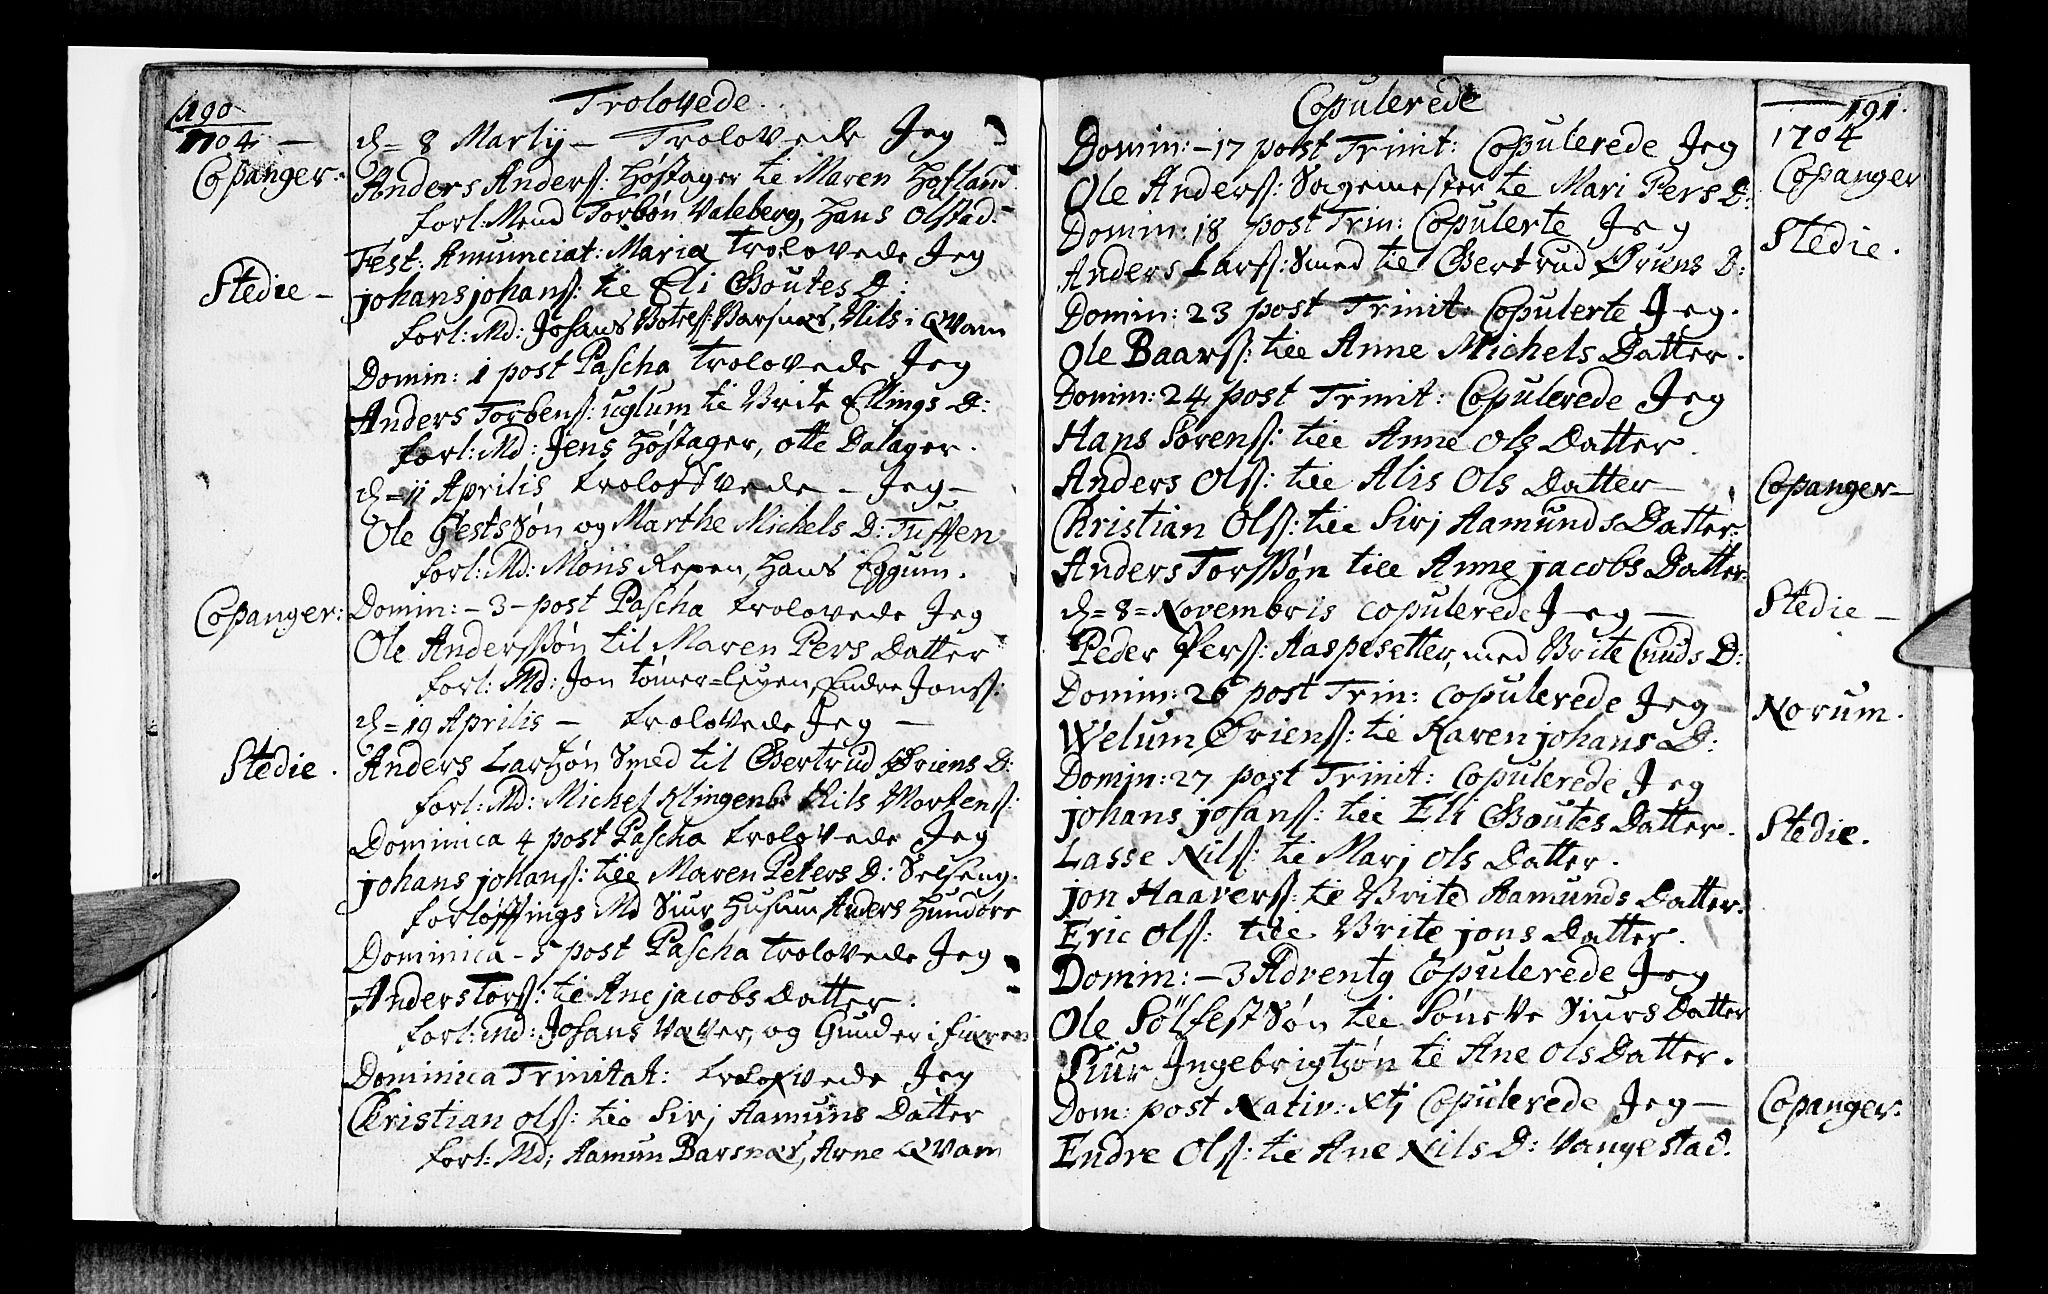 190
1704 —
Trolovede.
d= 8 Martij — Trolovede Jeg
Copanger: Anders Anderſ: Høſtager til Maren Hofland
forl: Mend Torbøn Valeberg, Hans Olstad:
Fest: Annunciat: Mariæ trolovede Jeg
Stedie — johans johanſ: til Eli Goutes D:
forl: Md: Johans Botolſ: Barsnæs, Nils i Qvam
Domin: 1 post Pascha trolovede Jeg
Anders Torbenſ: uglum til Brite Ellings D:
forl: Md: Jens Høſtager, otte Dalager.
d= 11 Aprilis trolofvede — Jeg —
Ole Gestssøn og Marthe Michels D: Tuffen
forl: Md: Mons Repen, Hans Eggum.
Copanger: Domin: — 3 — post Pascha trolovede Jeg
Ole Anderssøn til Maren Pers Datter
forl: Md: Jon tømer=, Endre Jonsſ:
d= 19 Aprilis — trolovede Jeg —
Stedie. Anders Larsøn Smed til Giertrud Øriens D:
forl: Md: Michel Klingenb: Nils Mortenſ:
Dominica 4 post Pascha trolovede Jeg
johans johanſ: till Maren Peters D: Selseng.
forløffnings Md Siur Husum Anders Hundere
Dominica — 5 post Pascha trolovede Jeg
Anders Torſ: til Ane jacobs Datter.
forl: md: Johans Væver, og Gunder i
Dominica Trinitat: trolofvede Jeg
Christian olſ: till Sirj Aamuns Datter
forl: Md: Aamun Barsnæs, Arne Qvam
Copulerede
191.
1704
Domin: — 17 post Trinit: Copulerede Jeg
Copanger
Ole Anderſ: Sagemester til Mari Pers D:
Domin: 18 post Trin: Copulerte Jeg
Stedie.
Anders Larſ: Smed till Giertrud Øriens D:
Domin: 23 post Trinit: Copulerte Jeg.
Ole Baarſ: till Anne Michels Datter.
Domin: 24 post Trinit: Copulerede Jeg
Hans Sörenſ: till Anne Ols Datter.
Anders Olſ: till Alis Ols Datter — Copanger —
Christian Olſ: till Sirj Aamunds Datter:
Anders Torssøn till Anne jacobs Datter:
d= 8 = Novembris copulerede Jeg — Stedie —
Peder Perſ: Aaspesetter, med Brite Cnuds D:
Domin: 26 post Trin: copulerede Jeg
Norum.
Welum Ørienſ: til Karen johans D:
Domin: 27 post Trinit: Copulerede Jeg
johans johanſ: till Eli Goutes Datter. Stedie.
Lasse Nilſ: til Marj Ols Datter.
jon Haaverſ: til Brite Aamunds Datter:
Eric Olſ: till Brite jons Datter.
Domin: — 3 Adventg Copulerede Jeg
Ole Sölfestsøn till Sönove Siurs Datter
Siur Ingebrigtsøn til Ane Ols Datter.
Dom: post Nativ: Xtj Copulerede Jeg — Copanger:
Endre Olſ: til Ane Nils D: Vangestad.